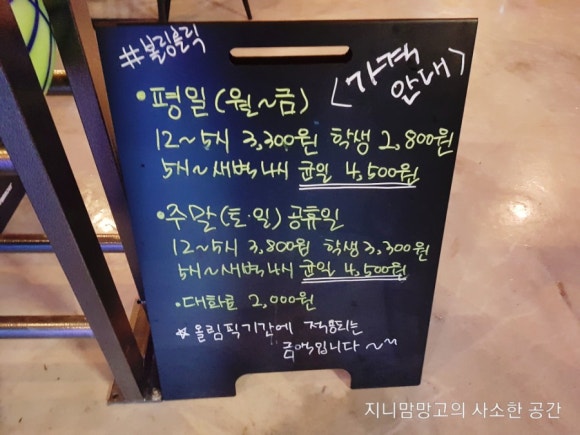 #볼링홀릭
[가격
안내]
•평일(월~금)
12~5시 3,300원 학생 2,800원
5시~새벽4시 균일 4,500원
•주말(토·일)공휴일
12~5시 3,800원 학생 3,300원
5시~새벽4시 균일 4,500원
•대화료 2,000원
☆올림픽기간에 적용되는
금액입니다~~
지니맘망고의 사소한 공간